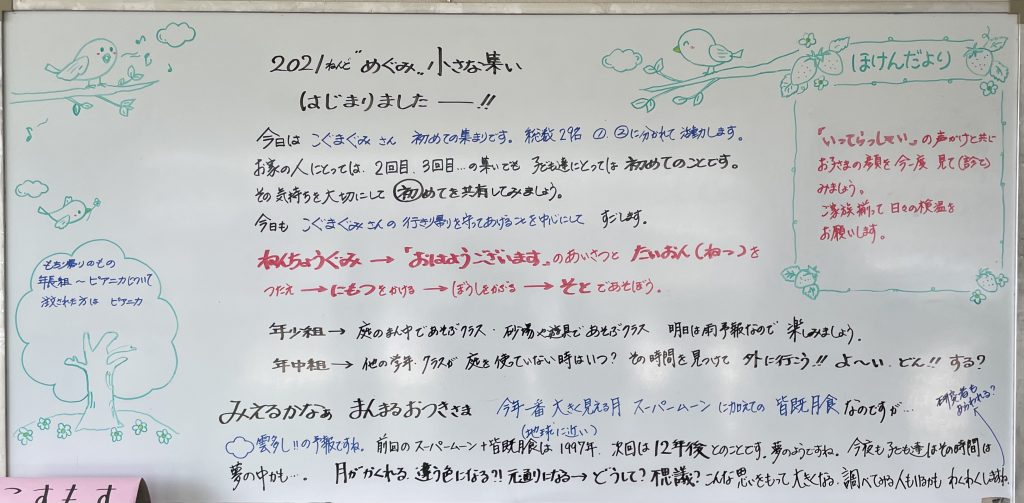 2021ねんど "めぐみ" 小さな集い
はじまりました ――!!
今日は こぐまぐみ さん 初めての集まりです。 総数29名 ①、②に分かれて活動します。
お家の人にとっては、2回目、3回目…の集いでも 子ども達にとっては 初めてのことです。
その気持ちを大切にして 初めてを共有してみましょう。
今日も こぐまぐみさんの 行き帰りを守ってあげることを中心にして すごします。
ねんちょうぐみ → 「おはようございます」のあいさつと たいおん(ねつ)を
つたえ → にもつをかける → ぼうしをかぶる → そとであそぼう。
年少組 → 庭のまん中であそぶクラス・砂場や遊具であそぶクラス 明日は雨予報なので 楽しみましょう。
年中組 → 他の学年、クラスが 庭を使っていない時はいつ? その時間を見つけて 外に行こう!! よ〜い、どん!! する?
みえるかなぁ まんまるおつきさま 今年一番 大きく見える月 スーパームーン に加えての 皆既月食 なのですが…
(地球に近い)
雲多し!!の予報ですね。 前回のスーパームーン+皆既月食は 1997年、次回は 12年後とのことです。夢のようですね。 今夜も子ども達はその時間は
夢の中かも… 月がかくれる、違う色になる?! 元通りになる → どうして? 不思議? こんな思いをもって大きくなる、調べてみる人もいるかも わくわくしますね
研究者も
あらわれる?
もち帰りのもの
年長組 〜 ピアニカについて
ピアニカ
ほけんだより
「いってらっしゃい」の声かけと共に
お子さまの顔を今一度 見て(診て)
みましょう。
ご家族揃って 日々の検温を
お願いします。
こすもす